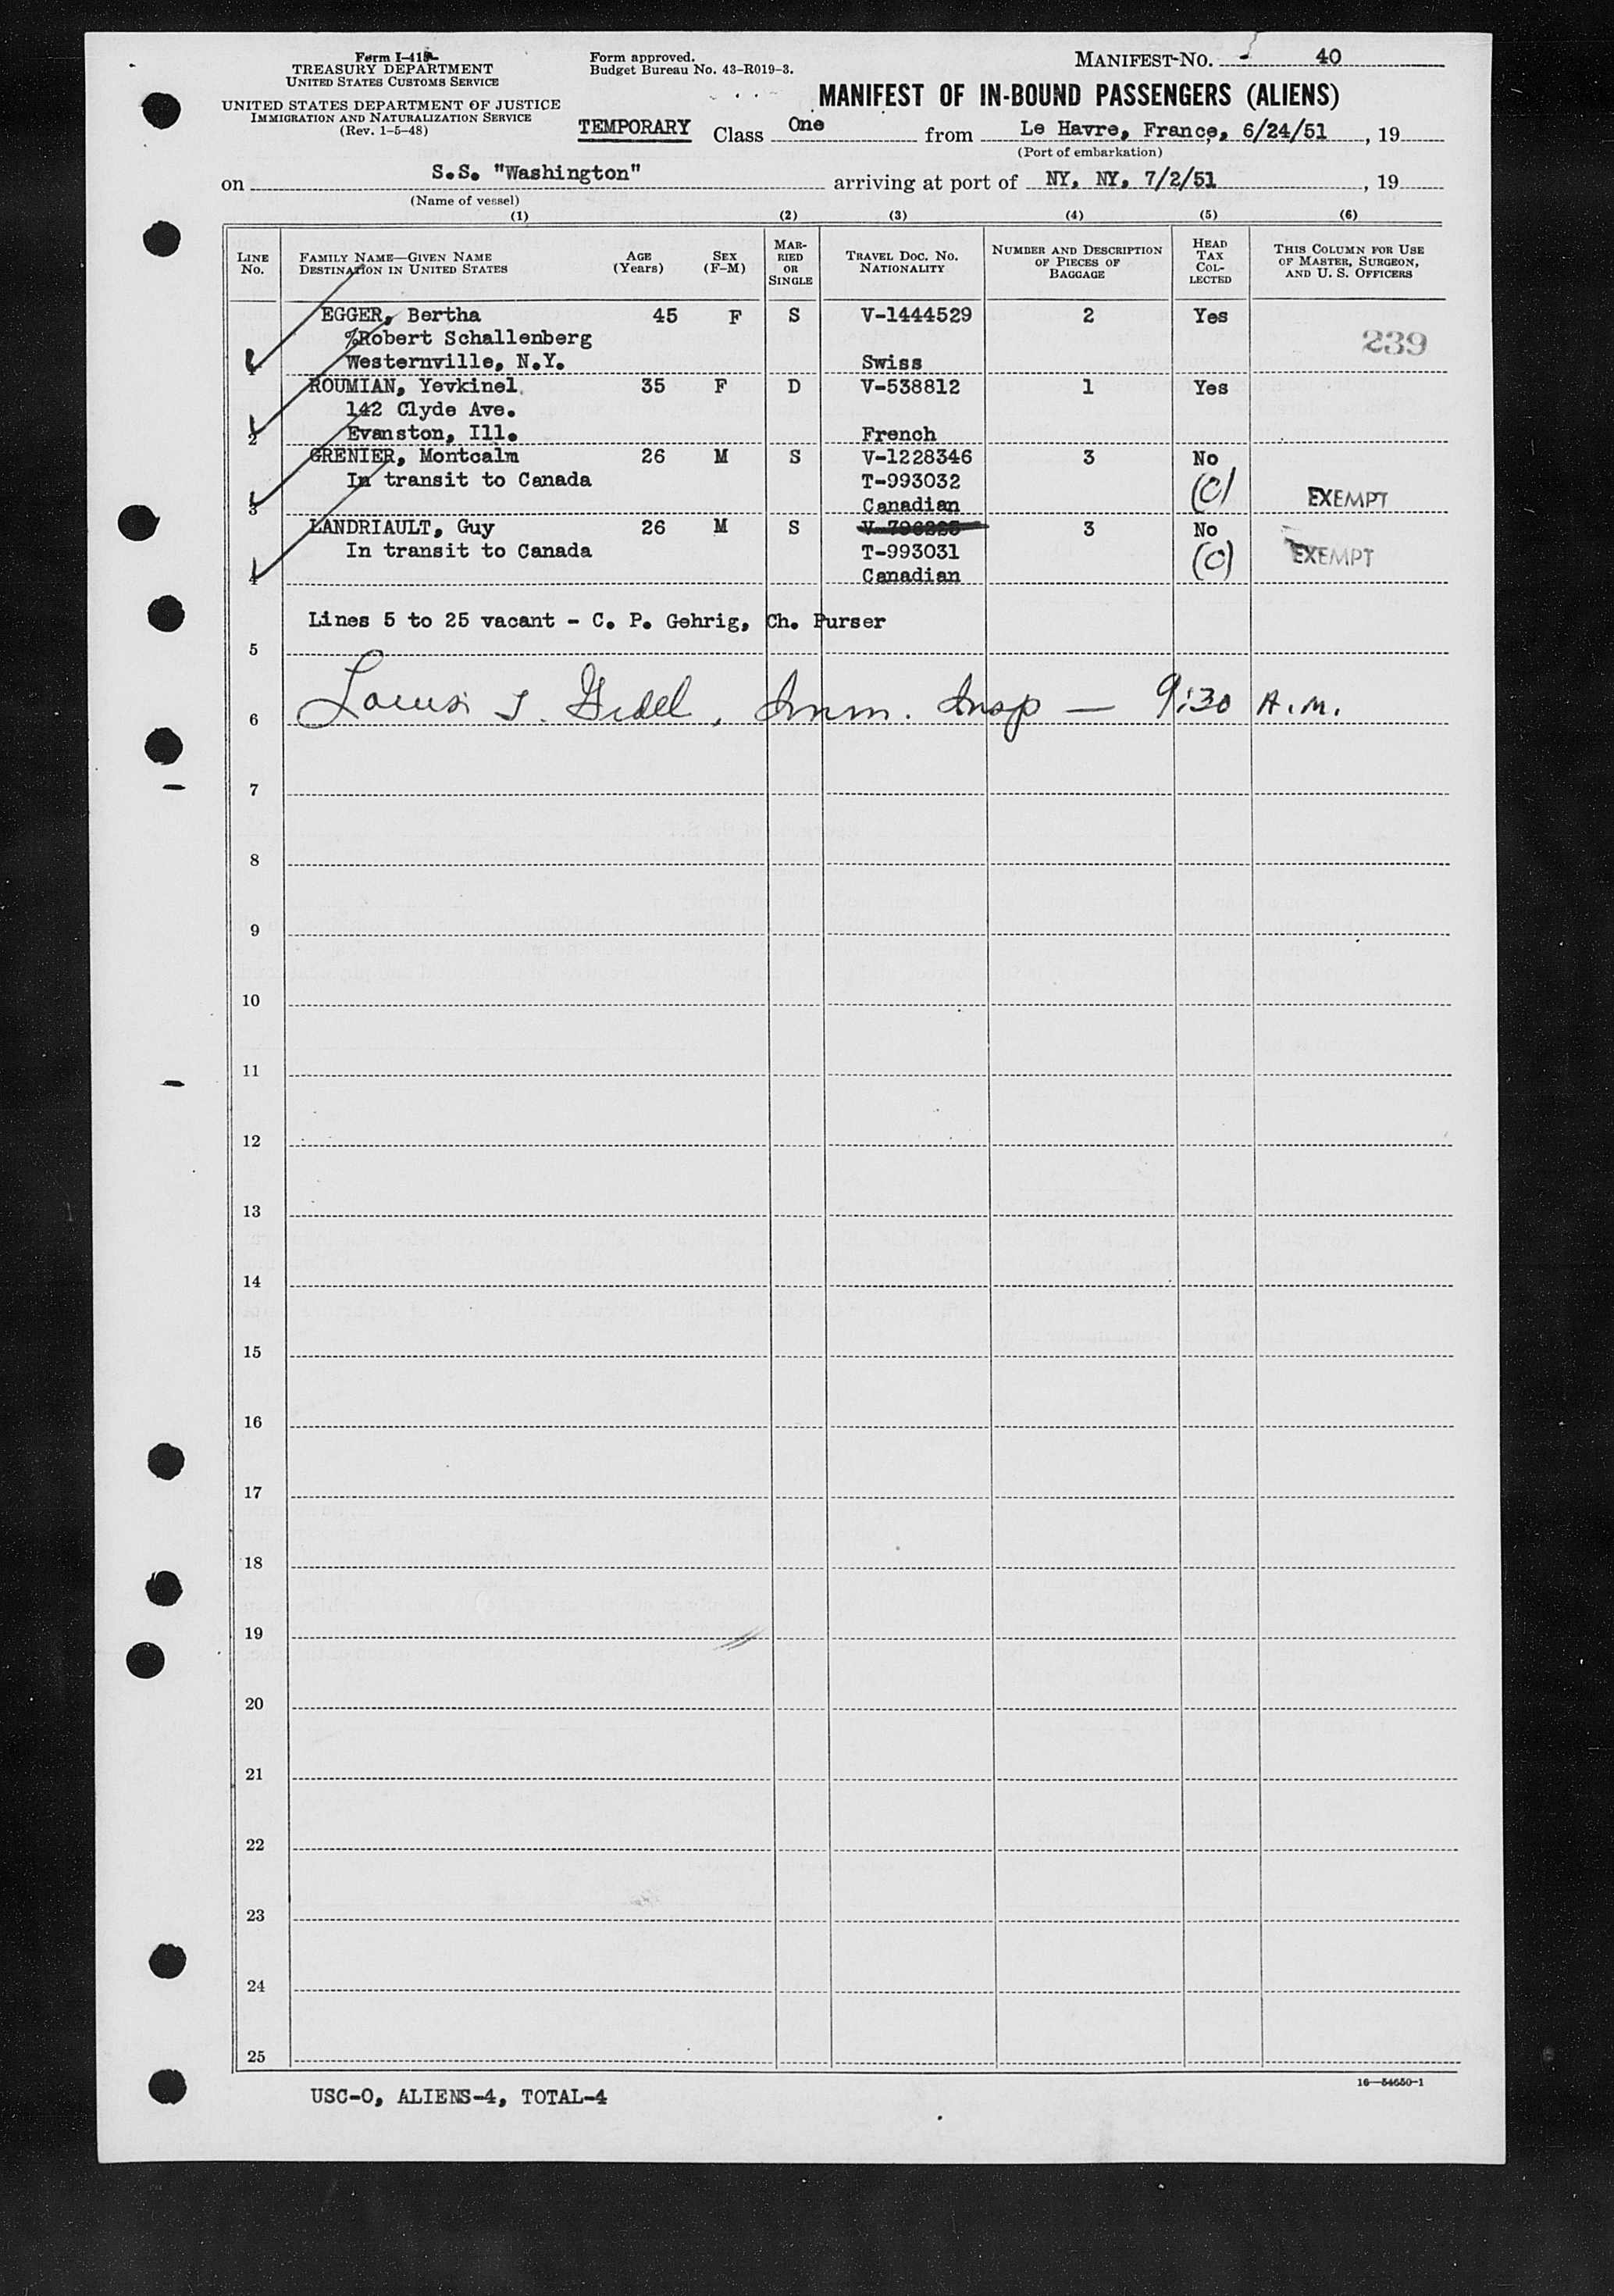 Form I-415
TREASURY DEPARTMENT
UNITED STATES CUSTOMS SERVICE
UNITED STATES DEPARTMENT OF JUSTICE
IMMIGRATION AND NATURALIZATION SERVICE
(Rev. 1-5-48)
Form approved.
Budget Bureau No. 43-R019-3.
MANIFEST NO. 40
MANIFEST OF IN-BOUND PASSENGERS (ALIENS)
TEMPORARY Class One from Le Havre, France, 6/24/51, 19
(Port of embarkation)
on S.S. "Washington" arriving at port of NY, NY, 7/2/51, 19
(Name of vessel)
(1) (2) (3) (4) (5) (6)
LINE NO. FAMILY NAME—GIVEN NAME DESTINATION IN UNITED STATES AGE (Years) SEX (F-M) MARRIED OR SINGLE TRAVEL DOC. NO. NATIONALITY NUMBER AND DESCRIPTION OF PIECES OF BAGGAGE HEAD TAX COLLECTED THIS COLUMN FOR USE OF MASTER, SURGEON, AND U. S. OFFICERS
EGGER, Bertha 45 F S V-1444529 2 Yes
%Robert Schallenberg 239
1 Westernville, N.Y. Swiss
ROUMIAN, Yevkinel 35 F D V-538812 1 Yes
142 Clyde Ave.
2 Evanston, Ill. French
GRENIER, Montcalm 26 M S V-1228346 3 No
In transit to Canada T-993032 (C) EXEMPT
3 Canadian
LANDRIAULT, Guy 26 M S 3 No
In transit to Canada T-993031 (C) EXEMPT
4 Canadian
Lines 5 to 25 vacant - C. P. Gehrig, Ch. Purser
5
6 Imm. Insp — 9:30 A.M.
7
8
9
10
11
12
13
14
15
16
17
18
19
20
21
22
23
24
25
16—54650-1
USC-0, ALIENS-4, TOTAL-4